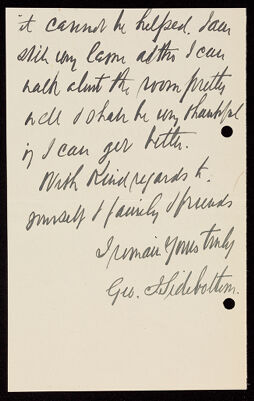 it cannot be helped. I am
still very lame altho I can
walk about the room pretty
well & shall be very thankful
if I can get better.
With Kind regards to
yourself & family & friends
I remain Yours truly
Geo. Sidebottom.